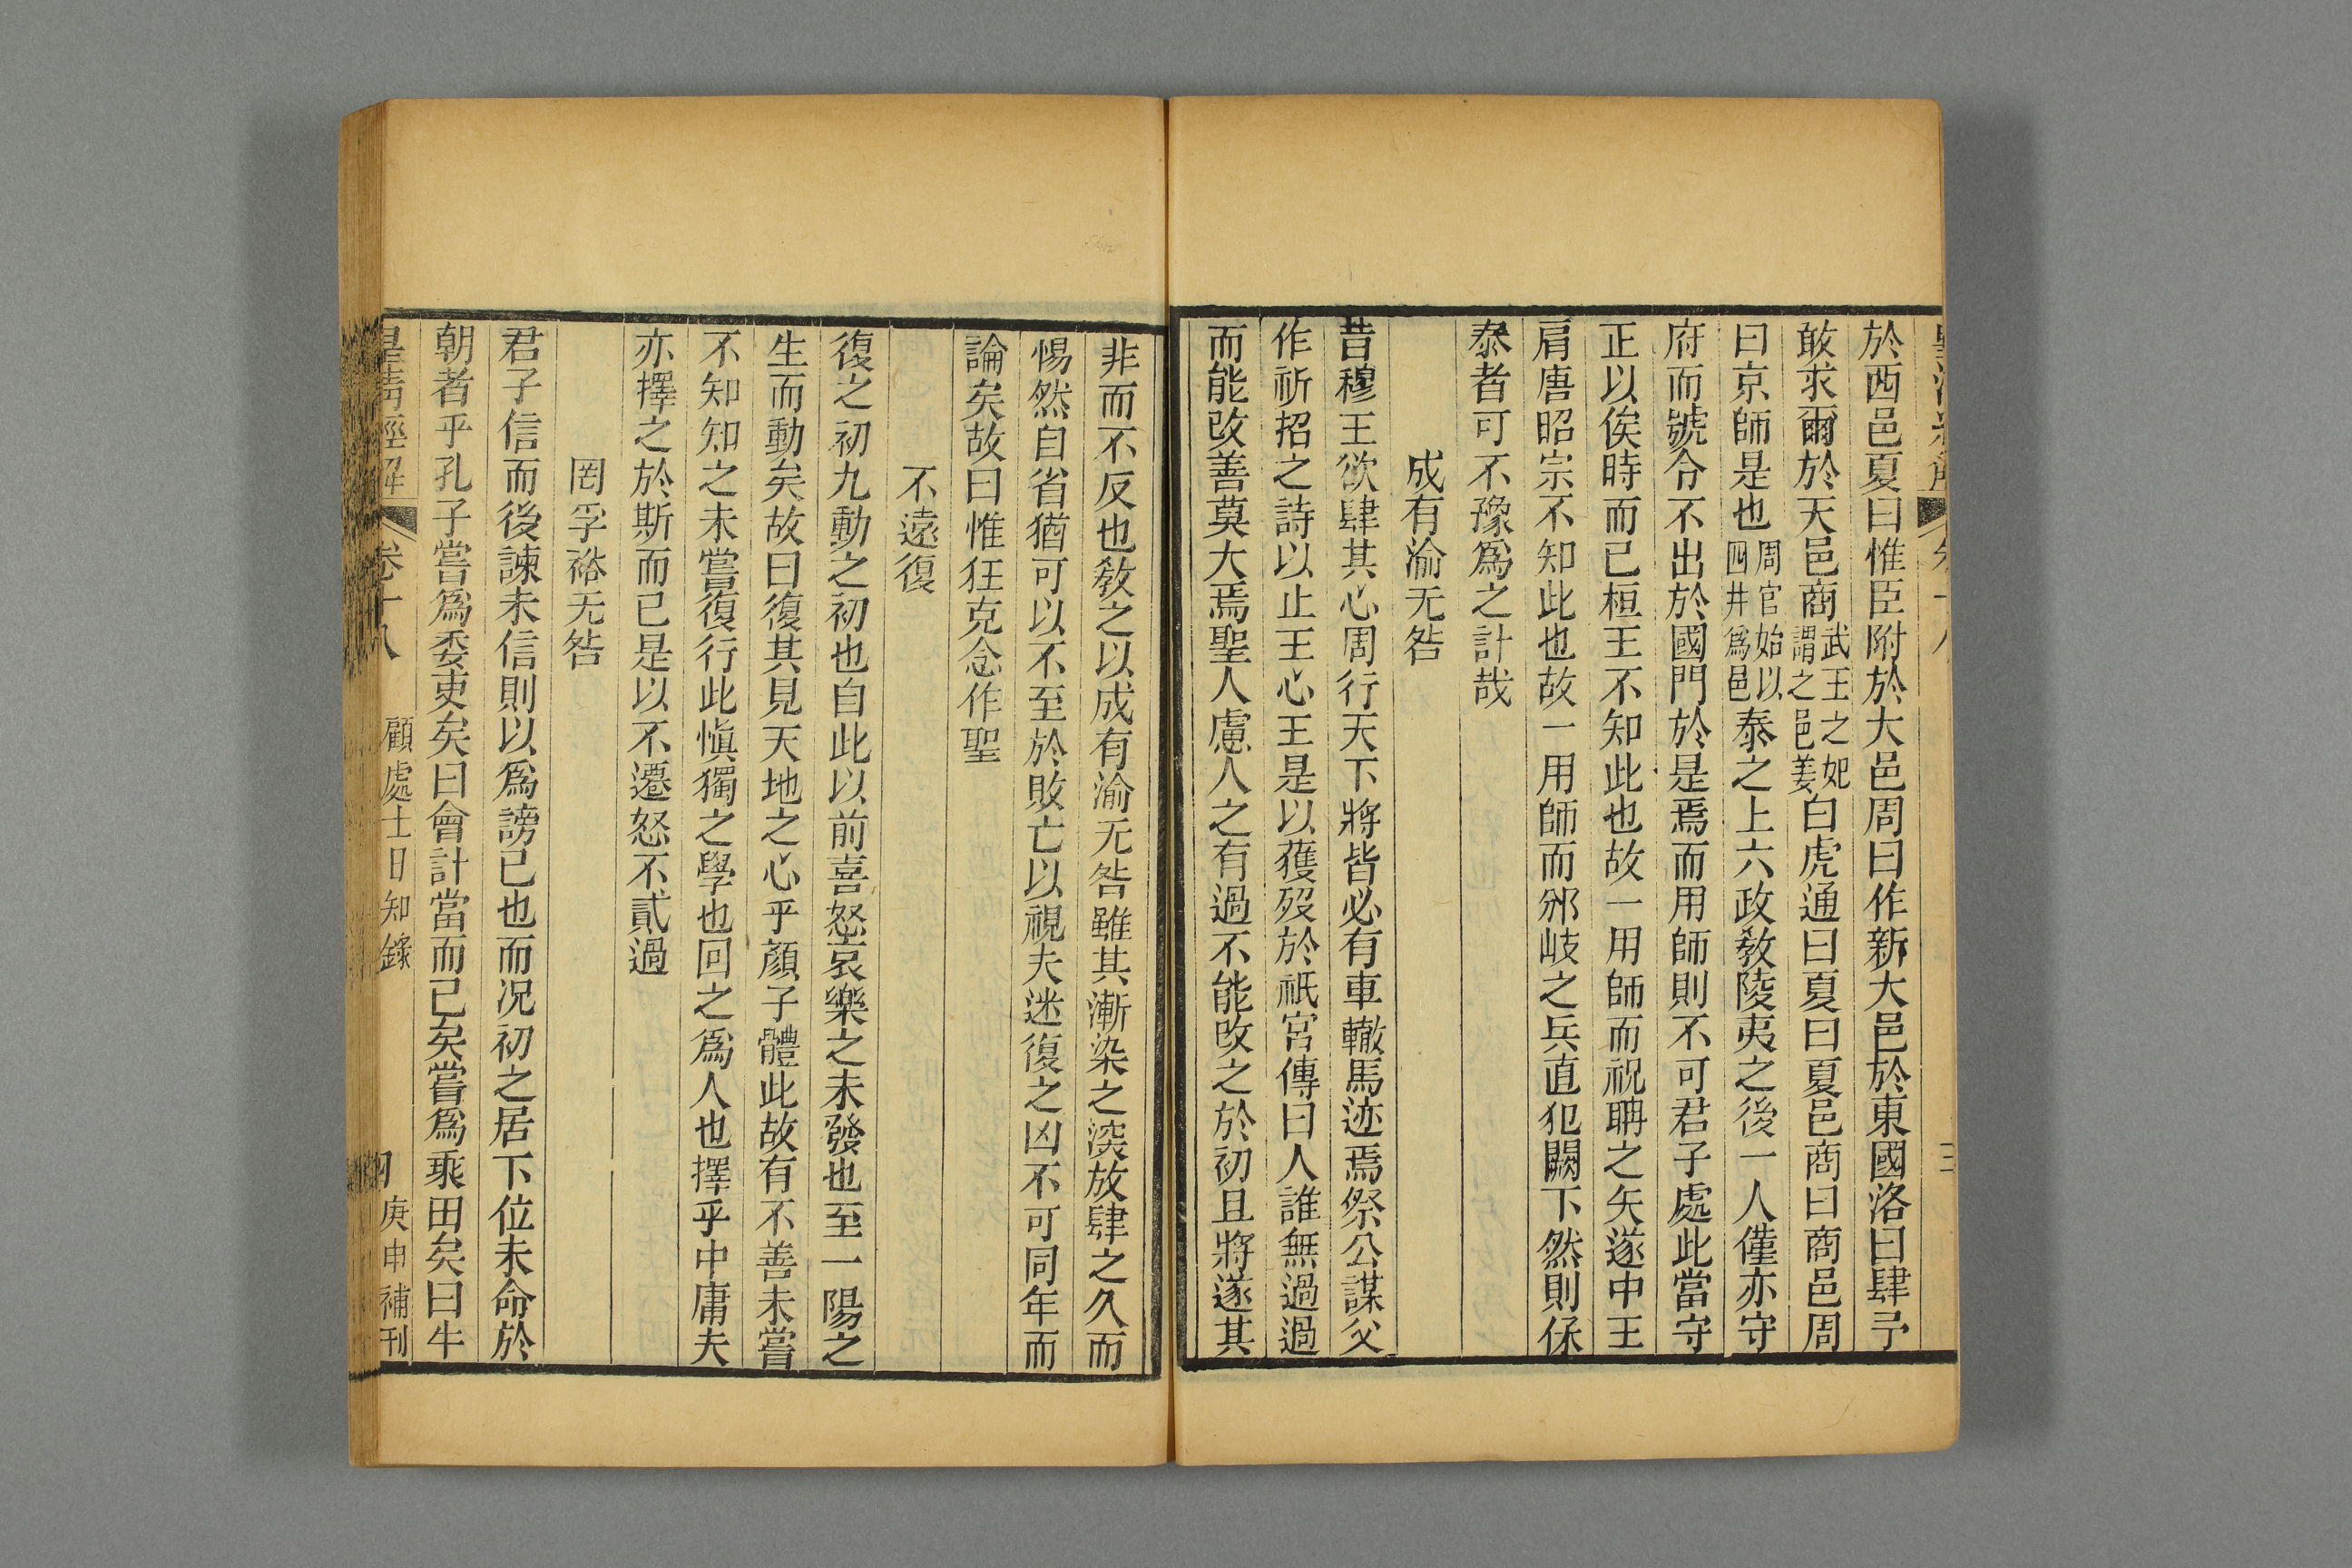 於西邑夏曰惟臣附於大邑周曰作新大邑於東國洛曰肆予
敢求爾於天邑商武王之妃謂之邑姜白虎通曰夏曰夏邑商曰商邑周
曰京師是也周官始以四井爲邑泰之上六政敎陵夷之後一人僅亦守
府而號令不出於國門於是焉而用師則不可君子處此當守
正以俟時而已桓王不知此也故一用師而祝聃之矢遂中王
肩唐昭宗不知此也故一用師而邠岐之兵直犯闕下然則保
泰者可不豫爲之計哉
成有渝无咎
昔穆王欲肆其心周行天下將皆必有車轍馬迹焉祭公謀父
作祈招之詩以止王心王是以獲歿於祇宮傳曰人誰無過過
而能改善莫大焉聖人慮人之有過不能改之於初且將遂其
非而不反也敎之以成有渝无咎雖其漸染之深放肆之久而
惕然自省猶可以不至於敗亡以視夫迷復之凶不可同年而
論矣故曰惟狂克念作聖
不遠復
復之初九動之初也自此以前喜怒哀樂之未發也至一陽之
生而動矣故曰復其見天地之心乎顏子體此故有不善未嘗
不知知之未嘗復行此愼獨之學也回之爲人也擇乎中庸夫
亦擇之於斯而已是以不遷怒不貳過
罔孚裕无咎
君子信而後諫未信則以爲謗已也而況初之居下位未命於
朝者乎孔子嘗爲委吏矣曰會計當而已矣嘗爲乘田矣曰牛
皇淸經解 卷十八 顧處士日知錄 庚申補刊